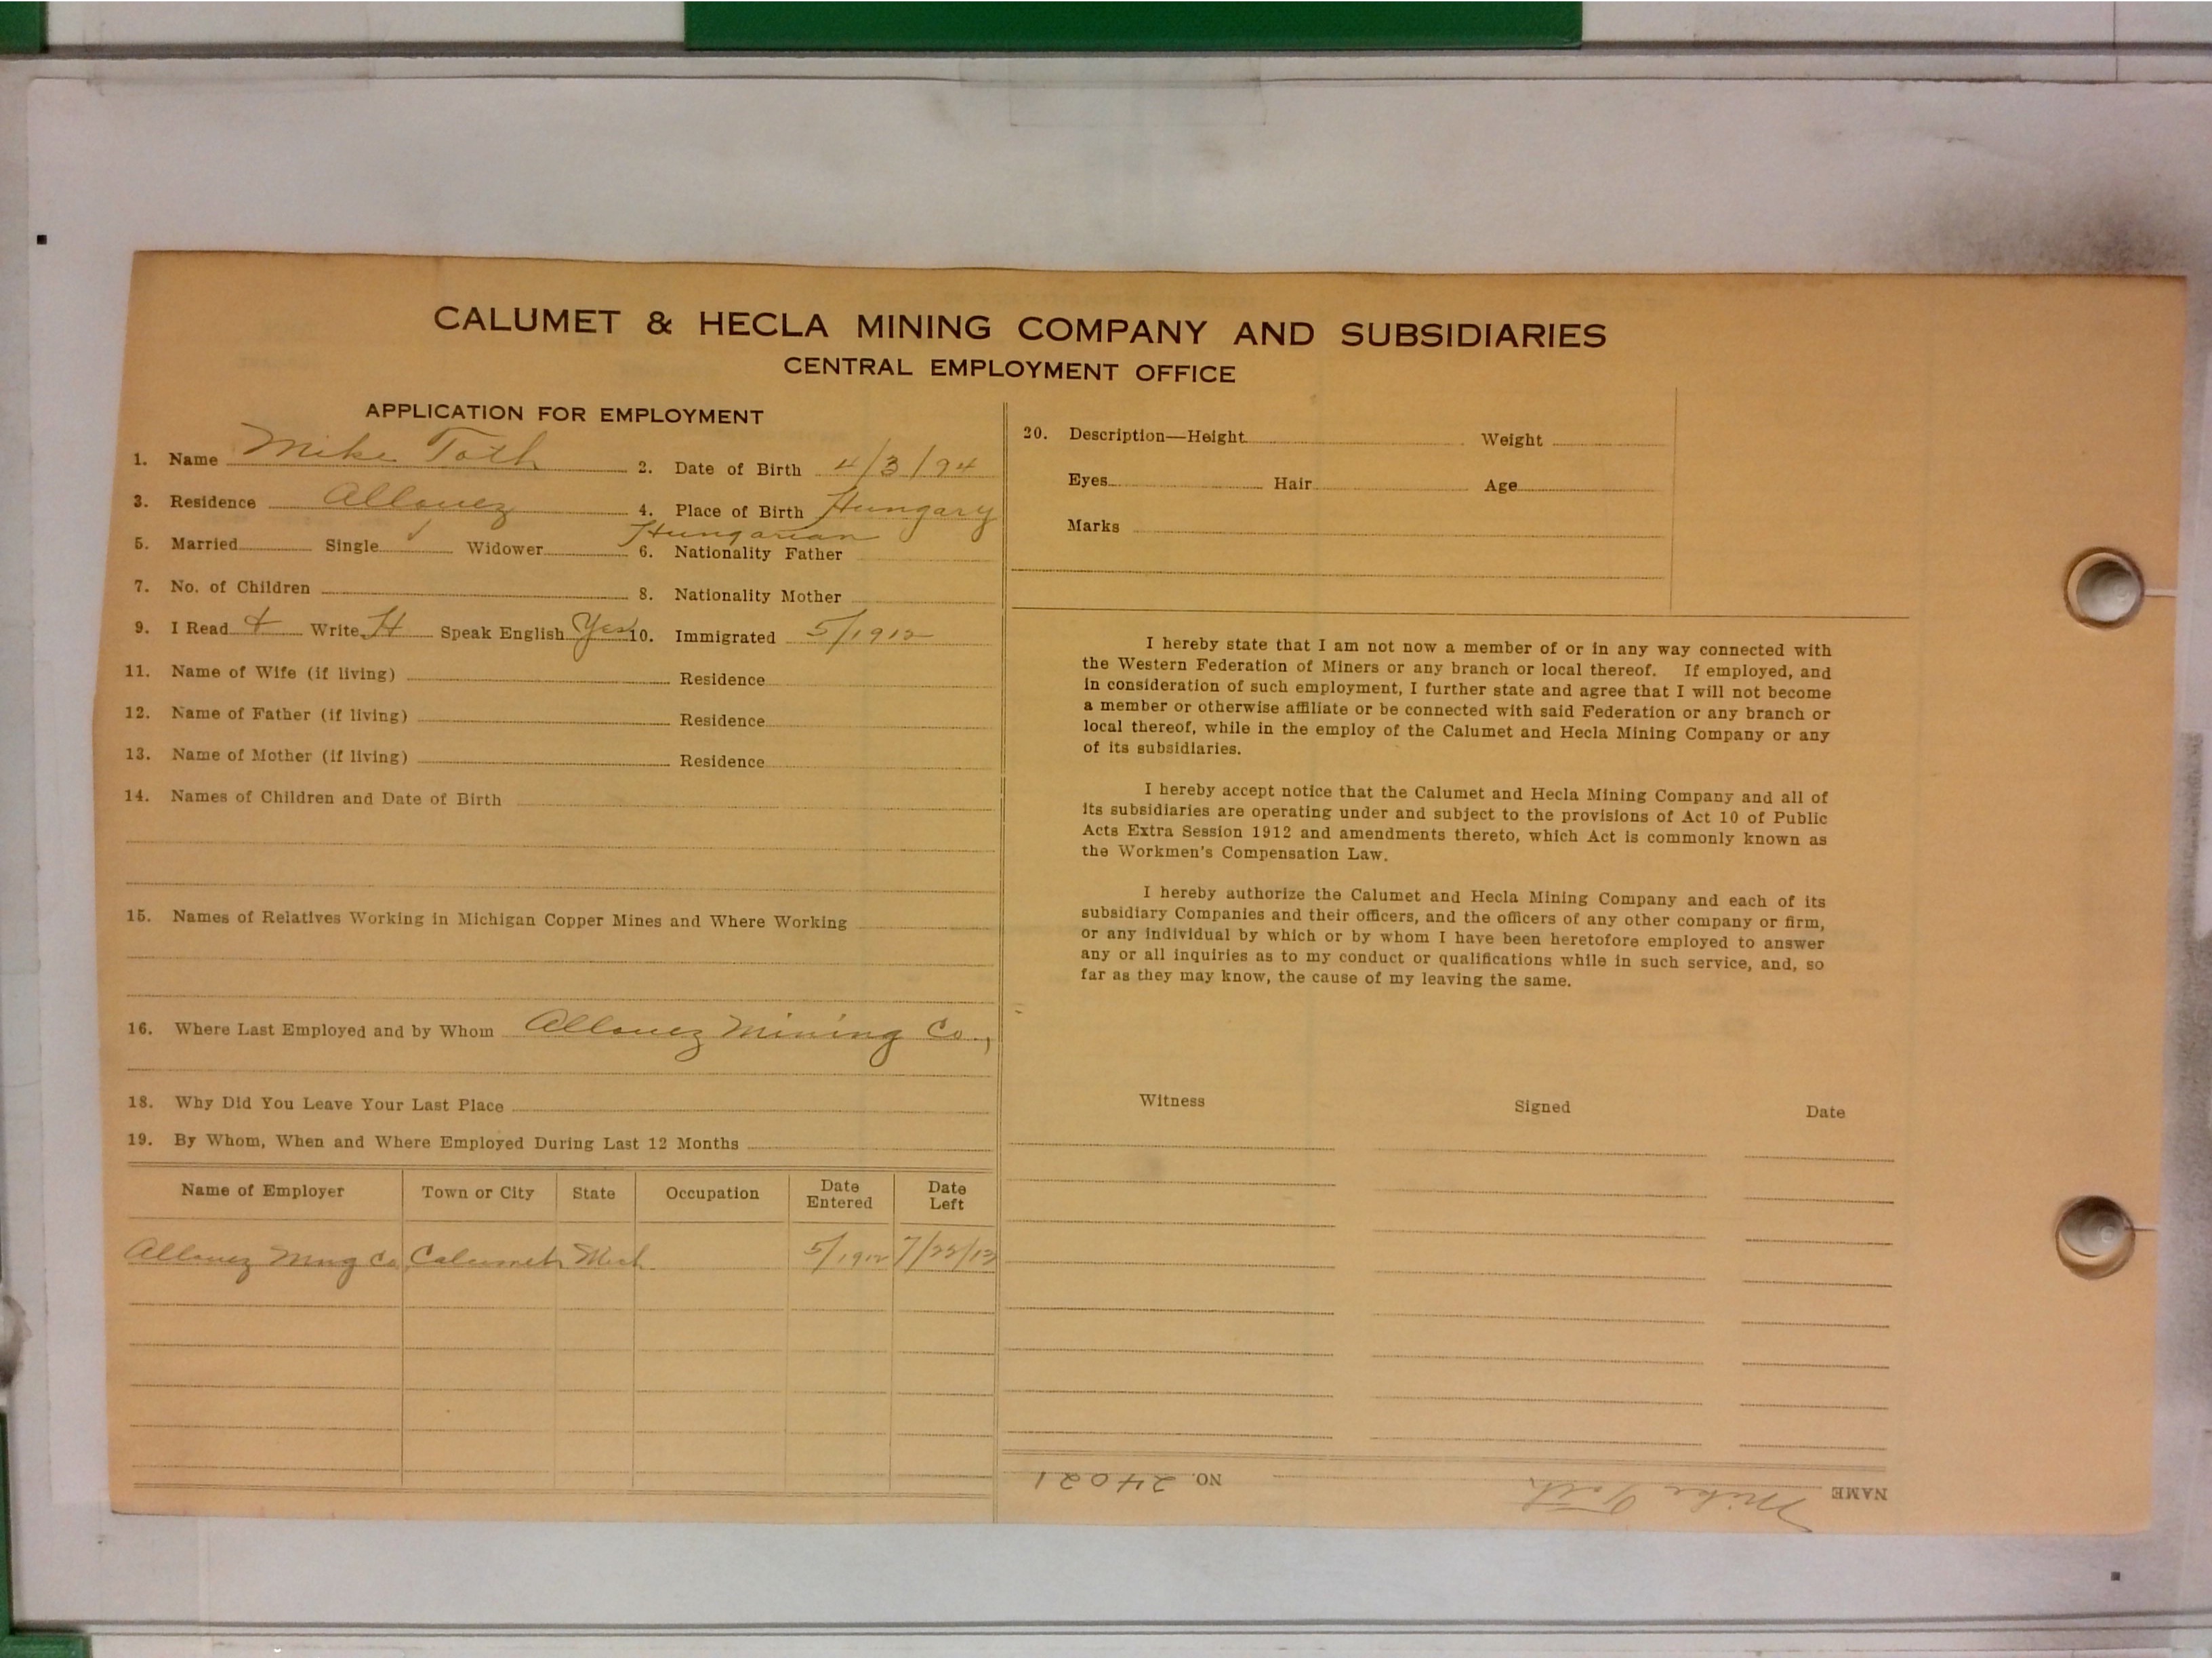 CALUMET & HECLA MINING COMPANY AND SUBSIDIARIES
CENTRAL EMPLOYMENT OFFICE
APPLICATION FOR EMPLOYMENT
1. Name Mike Toth 2. Date of Birth 4/3/94
3. Residence Allouez 4. Place of Birth Hungary
Hungarian
5. Married Single ✓ Widower 6. Nationality Father
7. No. of Children 8. Nationality Mother
9. I Read Write H Speak English Yes 10. Immigrated 5/1912
11. Name of Wife (if living) Residence
12. Name of Father (if living) Residence
13. Name of Mother (if living) Residence
14. Names of Children and Date of Birth
15. Names of Relatives Working in Michigan Copper Mines and Where Working
16. Where Last Employed and by Whom Allouez Mining Co.,
18. Why Did You Leave Your Last Place
19. By Whom, When and Where Employed During Last 12 Months
Name of Employer Town or City State Occupation Date Entered Date Left
Allouez Mng Co Calumet Mich 5/1912 7/23/13
20. Description—Height Weight
Eyes Hair Age
Marks
I hereby state that I am not now a member of or in any way connected with
the Western Federation of Miners or any branch or local thereof. If employed, and
in consideration of such employment, I further state and agree that I will not become
a member or otherwise affiliate or be connected with said Federation or any branch or
local thereof, while in the employ of the Calumet and Hecla Mining Company or any
of its subsidiaries.
I hereby accept notice that the Calumet and Hecla Mining Company and all of
its subsidiaries are operating under and subject to the provisions of Act 10 of Public
Acts Extra Session 1912 and amendments thereto, which Act is commonly known as
the Workmen's Compensation Law.
I hereby authorize the Calumet and Hecla Mining Company and each of its
subsidiary Companies and their officers, and the officers of any other company or firm,
or any individual by which or by whom I have been heretofore employed to answer
any or all inquiries as to my conduct or qualifications while in such service, and, so
far as they may know, the cause of my leaving the same.
Witness Signed Date
NAME Mike Toth NO. 24021